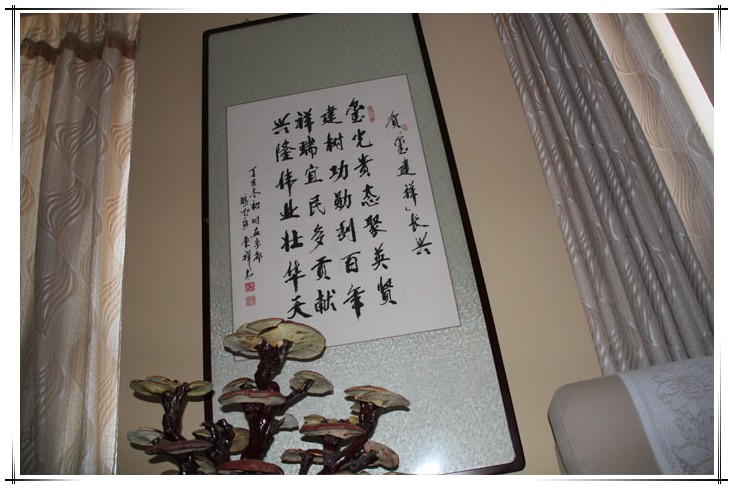 贺“玺建祥”长兴
玺光贵态聚英贤
建树功勋利百年
祥瑞宜民多贡献
兴隆伟业壮华天
丁亥冬初时在京都